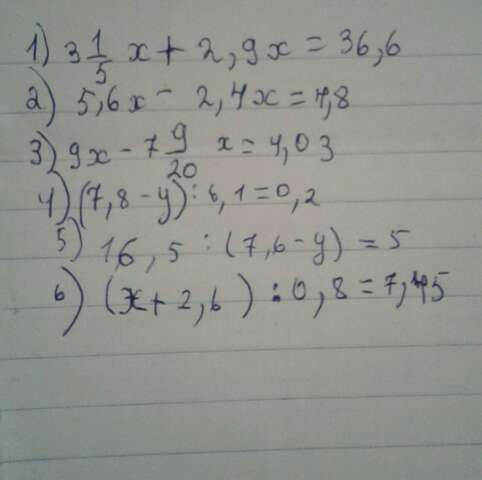 1) 3 1/5 x + 2,9x = 36,6
2) 5,6x - 2,4x = 4,8
3) 9x - 7 9/20 x = 4,03
4) (7,8 - y) : 6,1 = 0,2
5) 16,5 : (7,6 - y) = 5
6) (x + 2,6) : 0,8 = 7,45